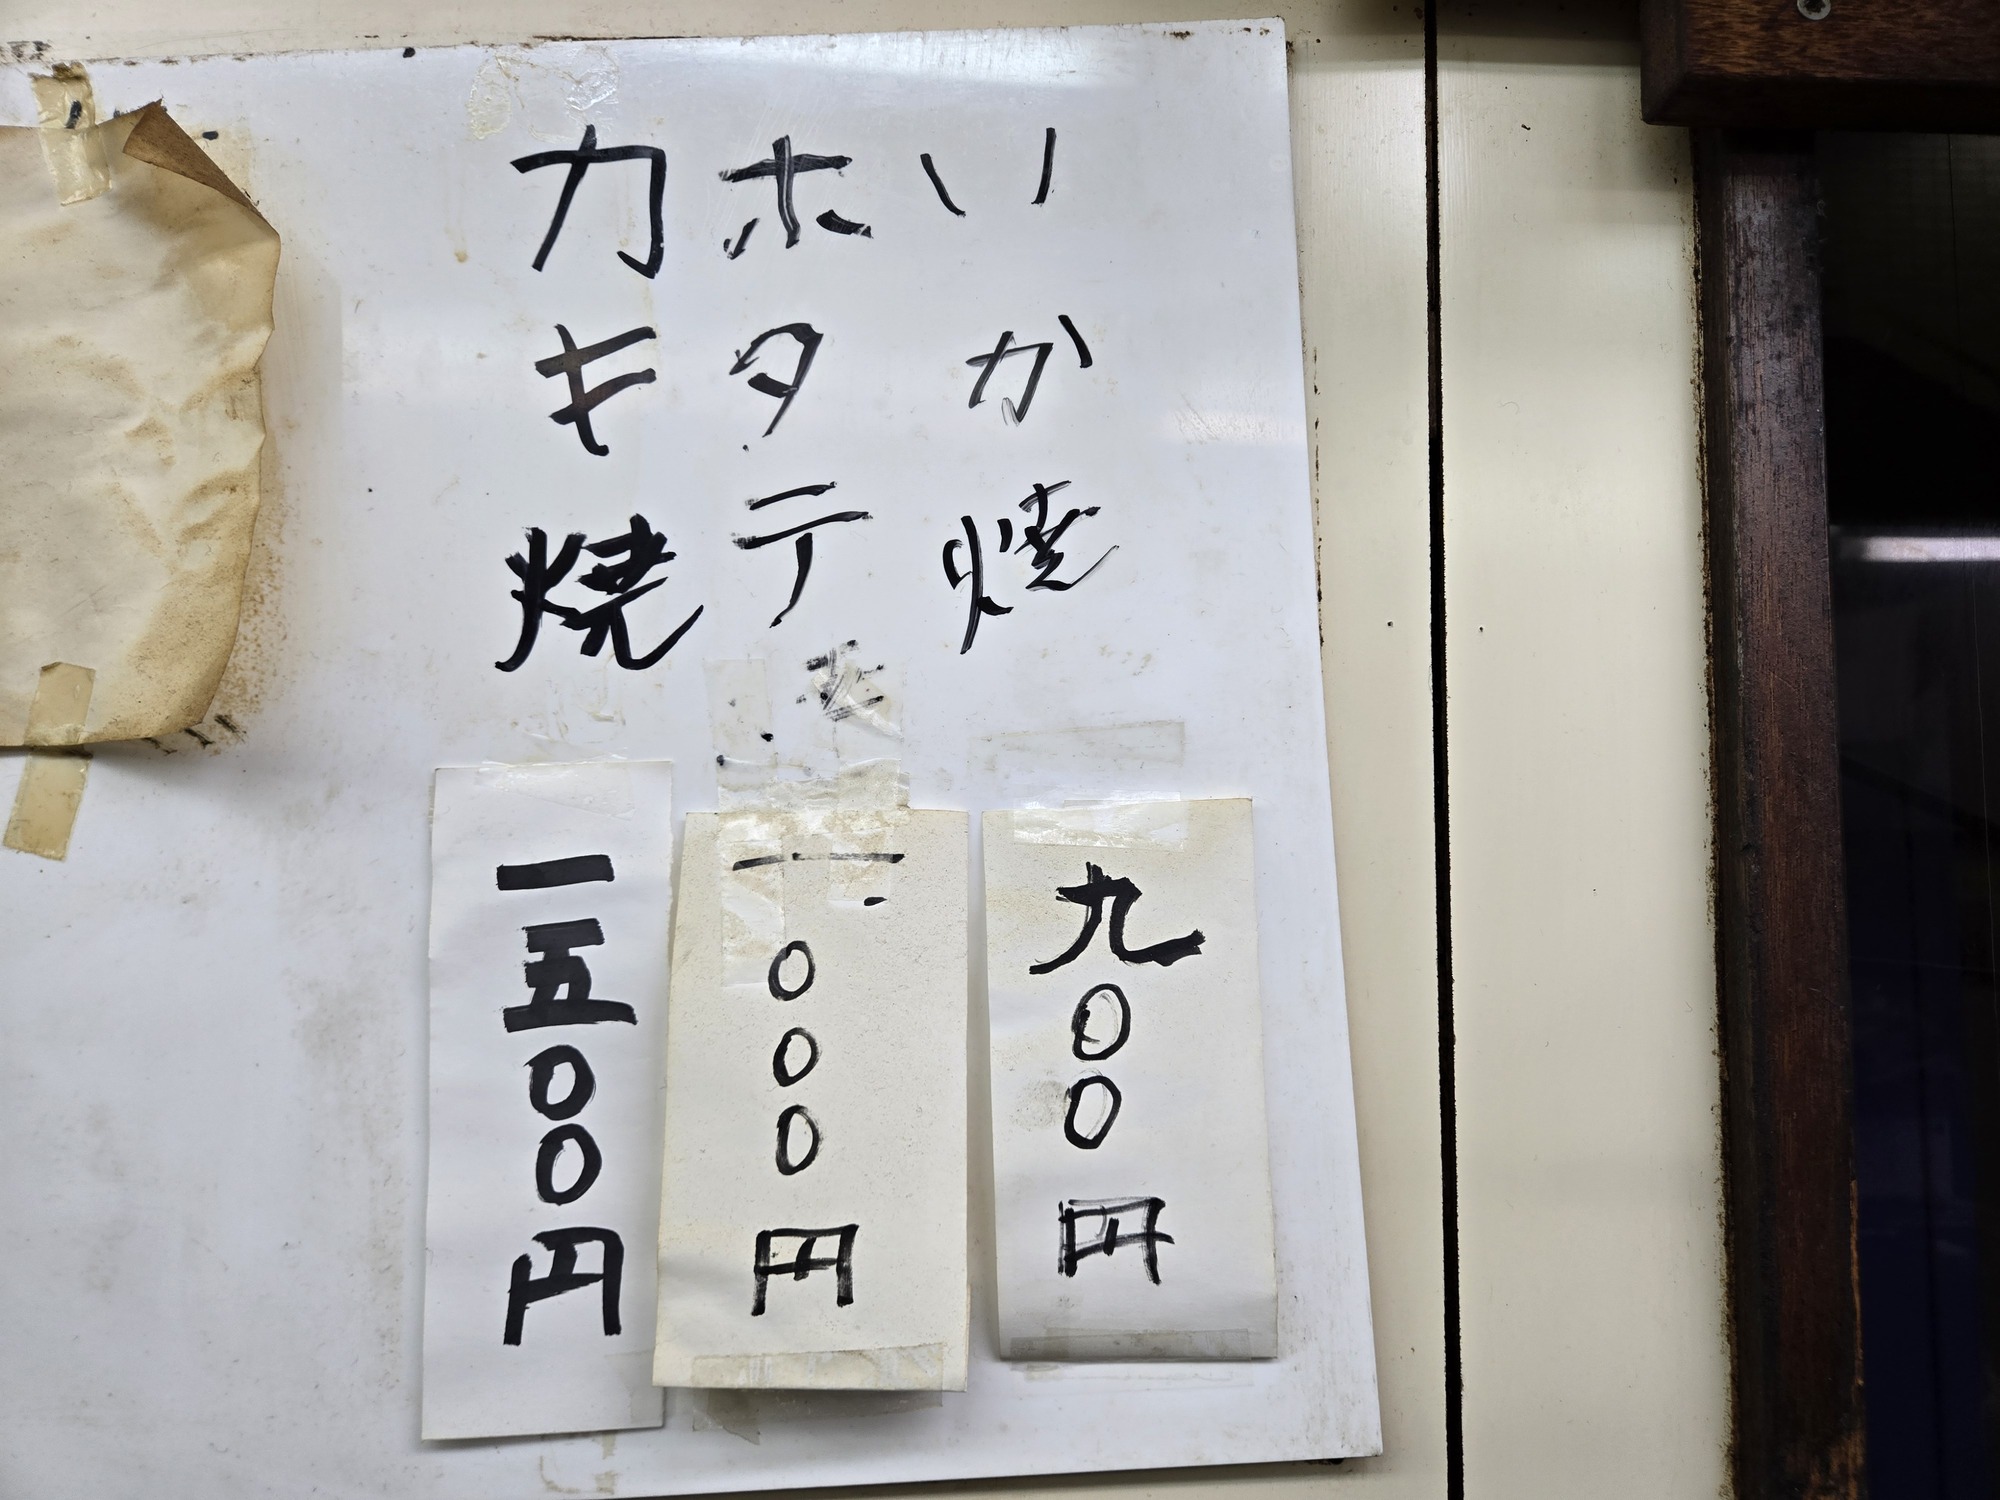 いか焼
九〇〇円
ホタテ
一〇〇〇円
カキ焼
一五〇〇円